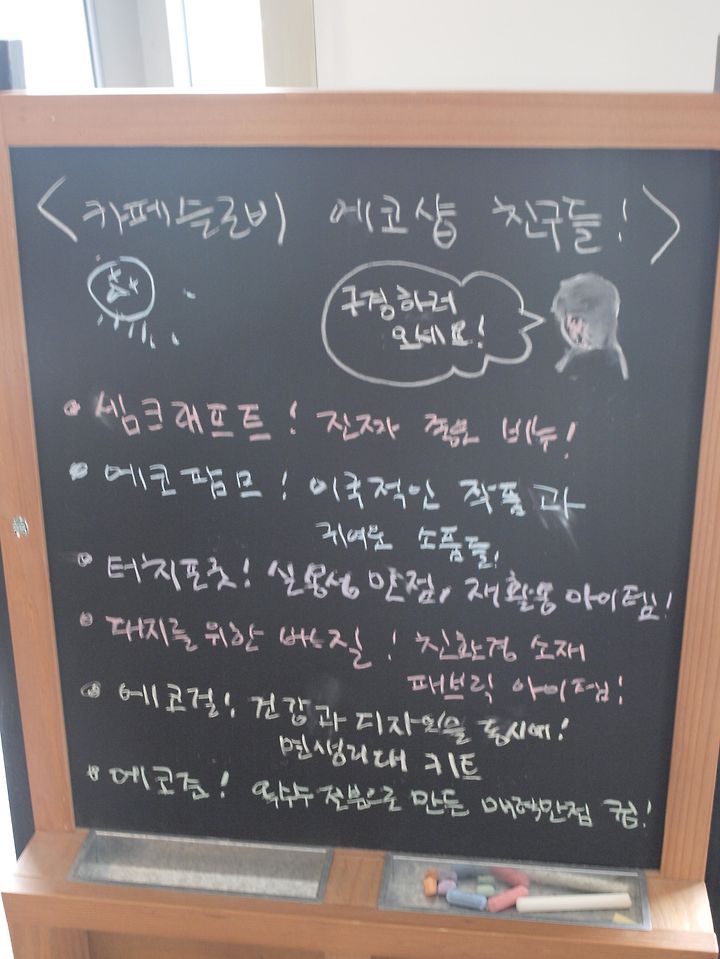 <카페슬로비 에코샵 친구들!>
구경하러
오세요!
셈크래프트! 진짜 좋은 비누!
에코팜므! 이국적인 작품과
귀여운 소품들!
터치포굿! 실용성 만점, 재활용 아이템!
대지를 위한 바느질! 친환경 소재
패브릭 아이템!
에코걸! 건강과 디자인을 동시에!
면생리대 키트
에코준! 옥수수 전분으로 만든 매력만점 컵!